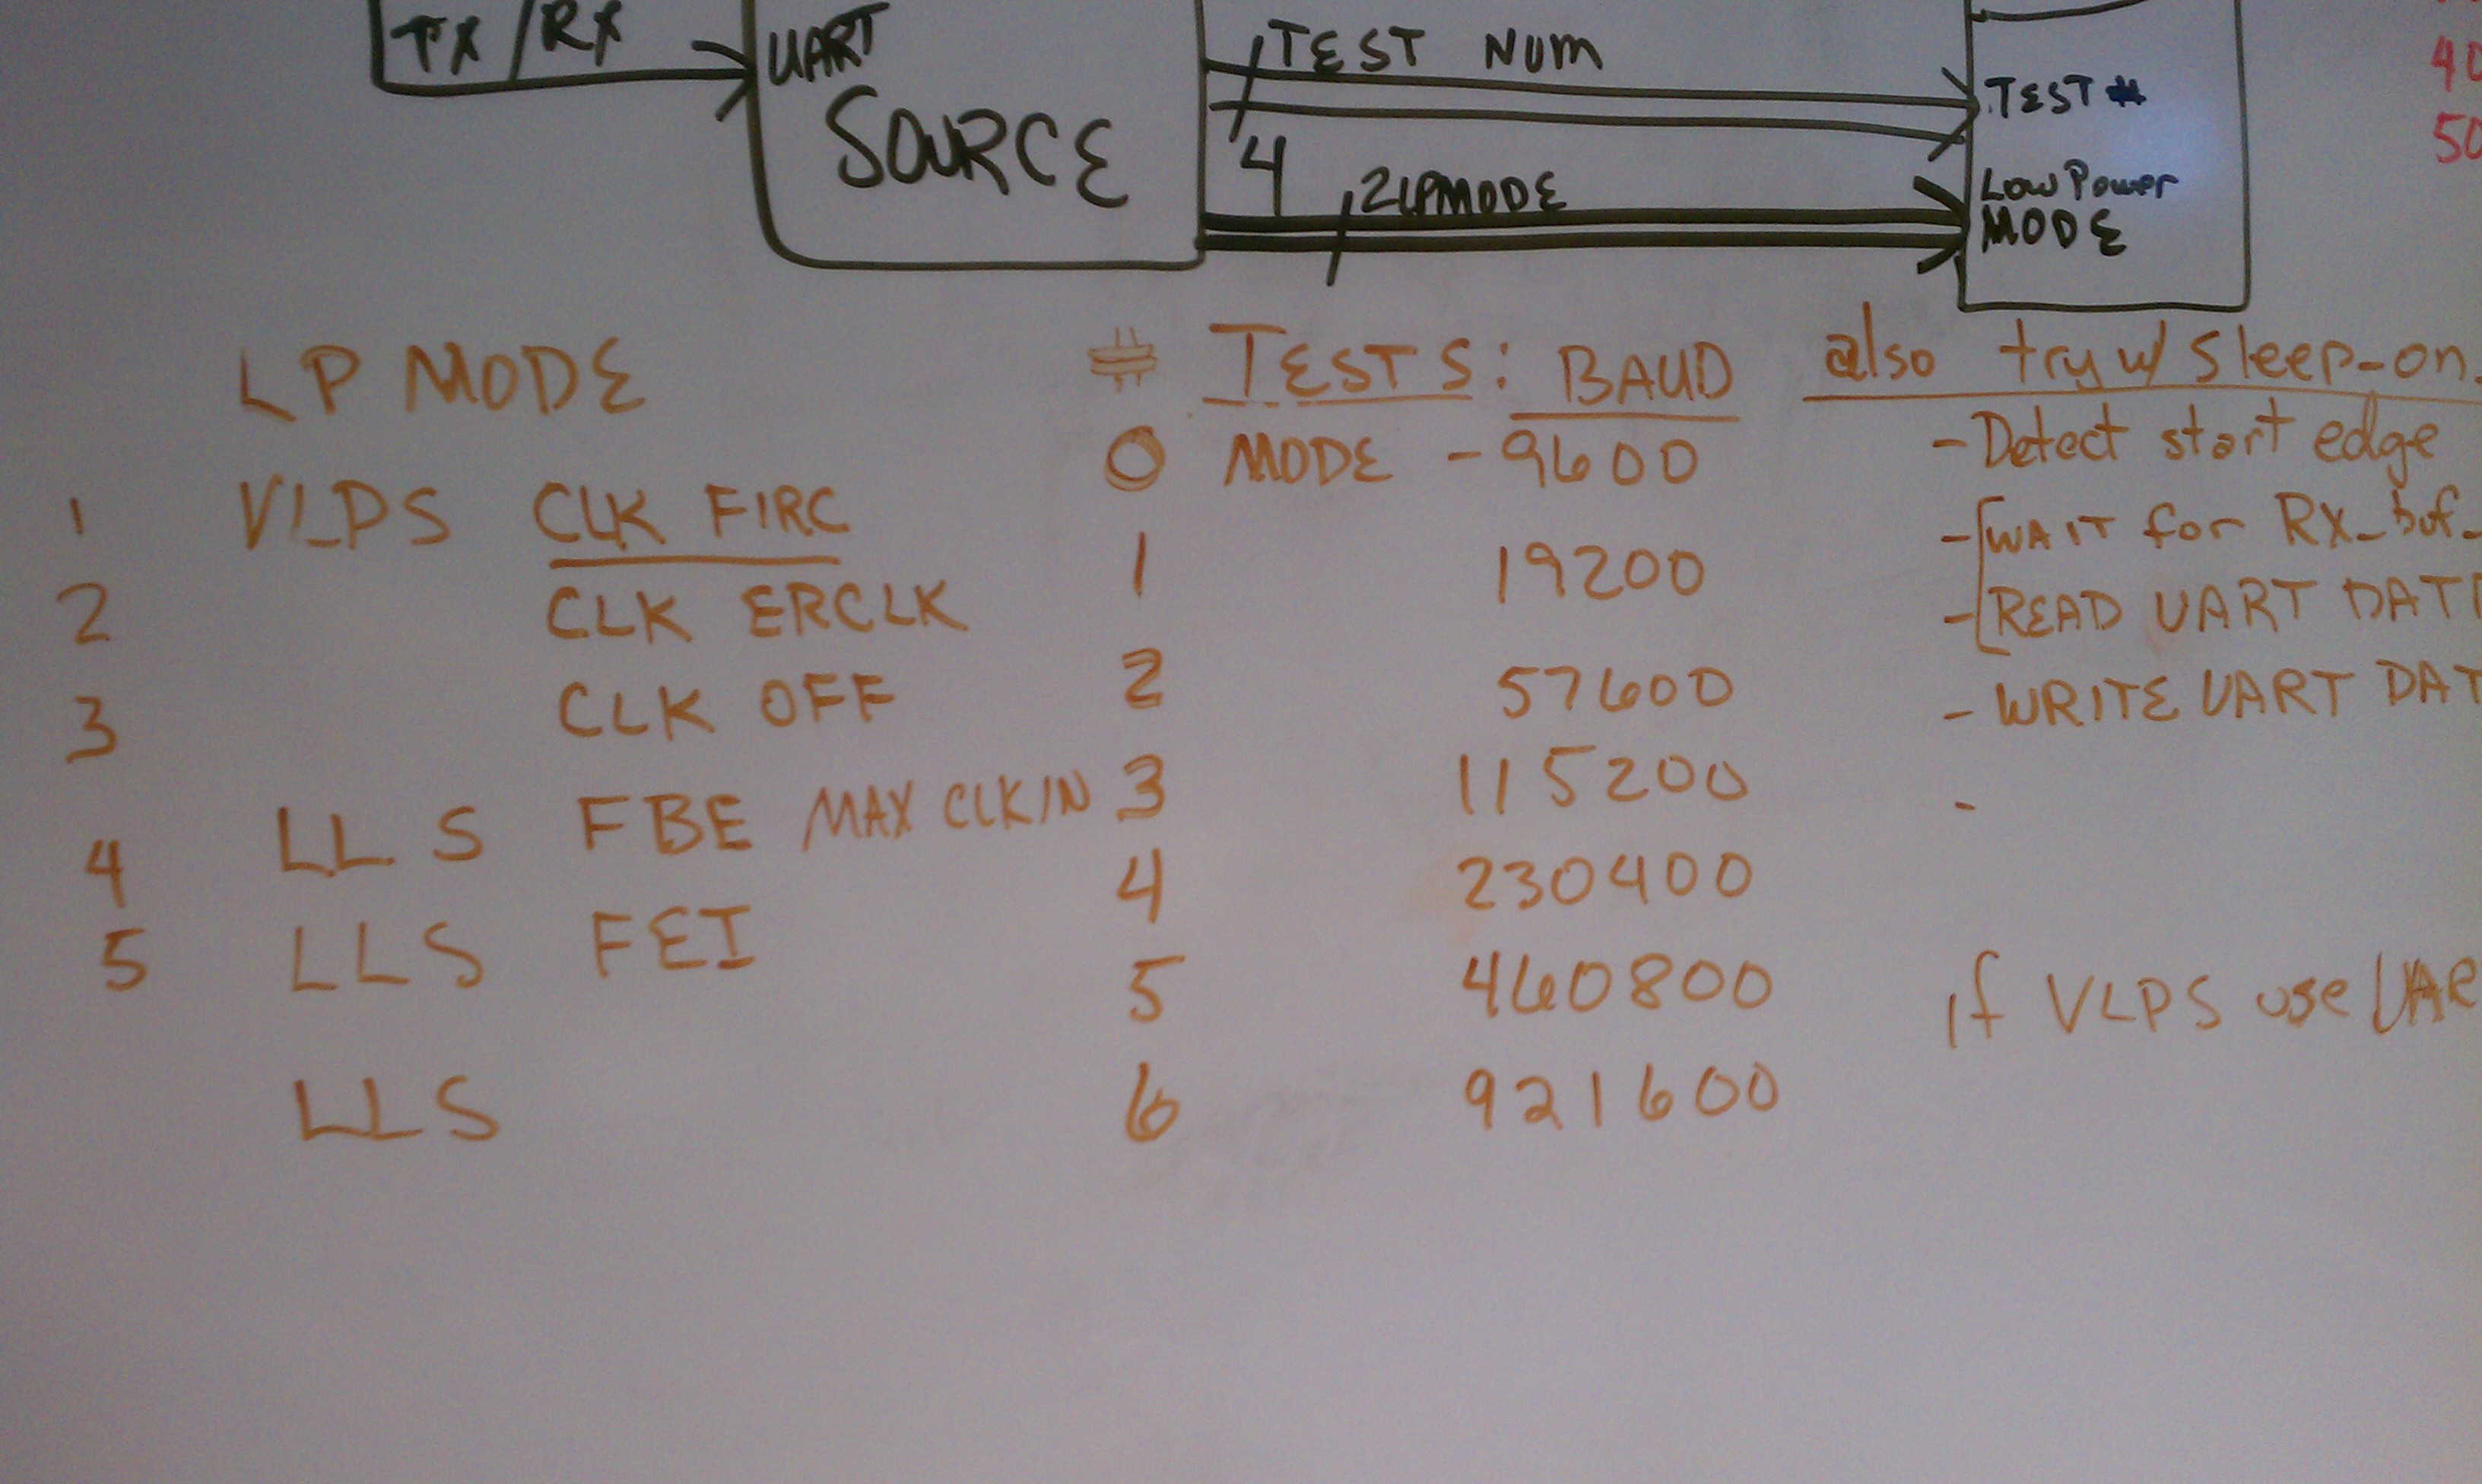 TX/RX
UART
SOURCE
TEST NUM
4
2LPMODE
TEST #
Low Power
MODE
40
50
LP MODE
1 VLPS CLK FIRC
2 CLK ERCLK
3 CLK OFF
4 LLS FBE MAX CLKIN
5 LLS FEI
LLS
# TESTS: BAUD
0 MODE - 9600
1 19200
2 57600
3 115200
4 230400
5 460800
6 921600
also try w/ Sleep-on
- Detect start edge
- WAIT for Rx_buf_
- READ UART DAT
- WRITE UART DAT
-
if VLPS use UAR